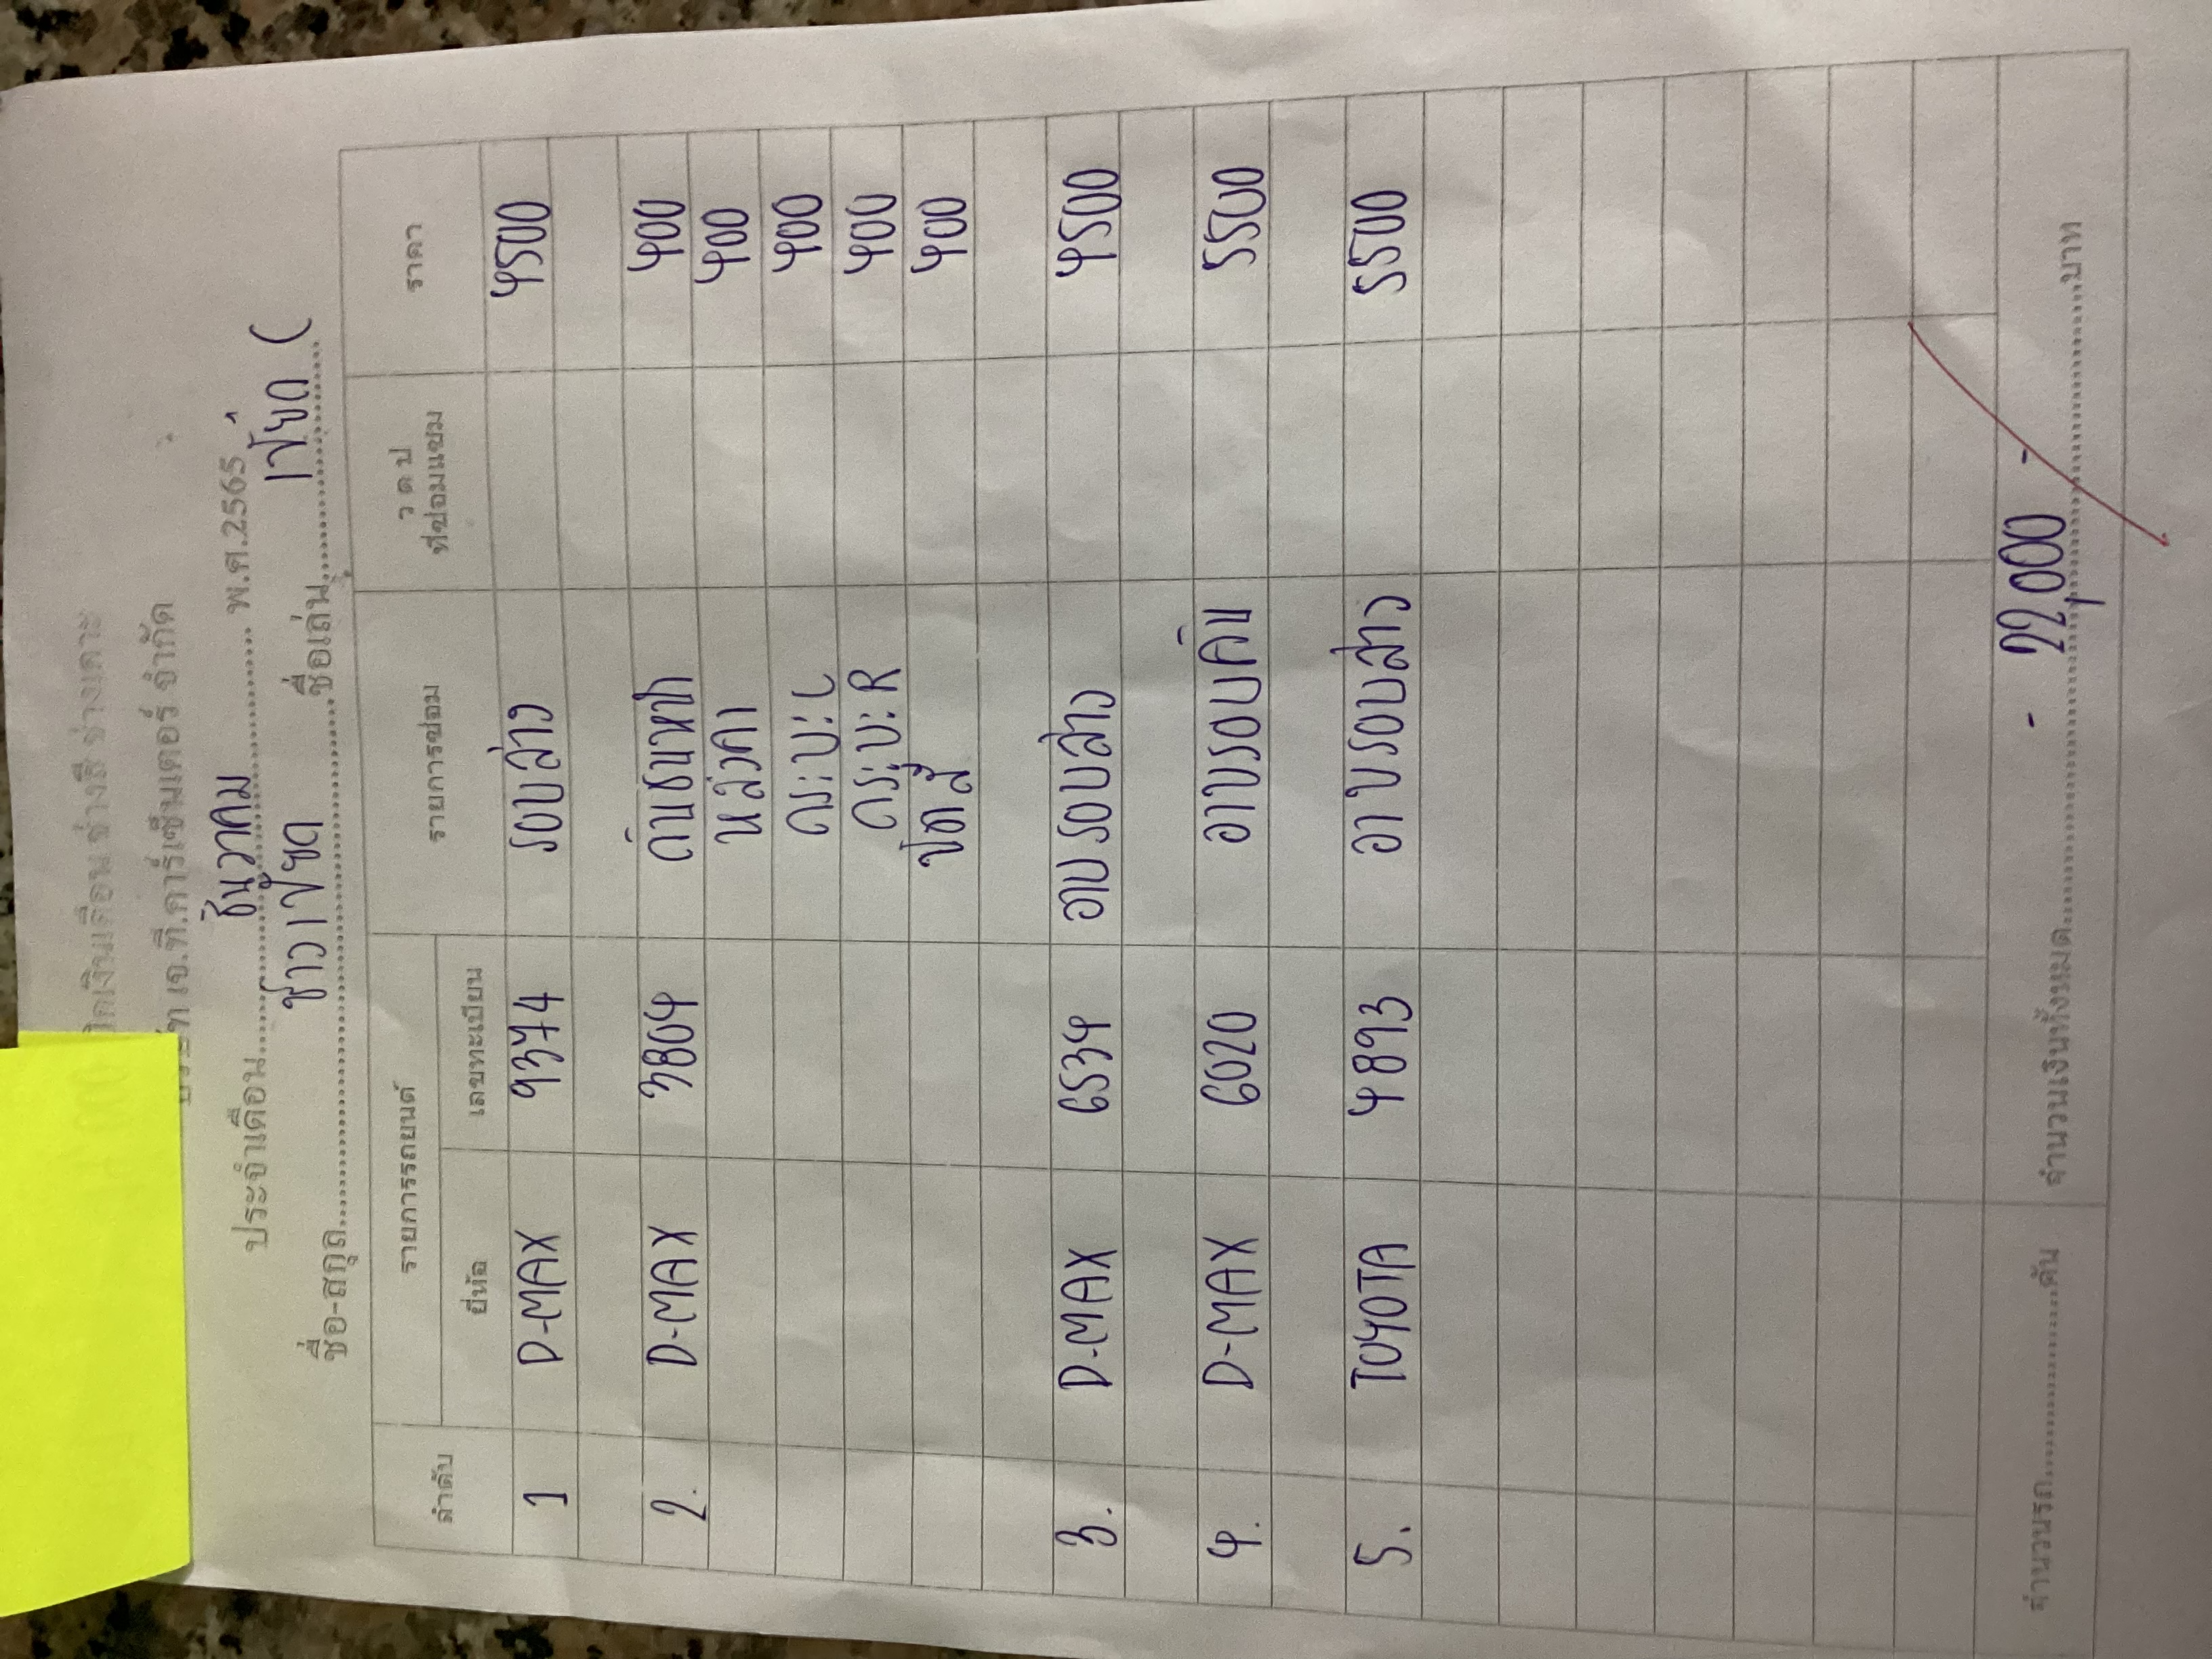 คิดเงินเดือน ช่างสี ช่างเคาะ
บริษัท เจ.ที.คาร์เซ็นเตอร์ จำกัด
ประจำเดือน ธันวาคม พ.ศ.2565
ชื่อ-สกุล ชื่อเล่น
ลำดับ รายการรถยนต์ รายการซ่อม ว ด ป ที่ซ่อมแซม ราคา
ยี่ห้อ เลขทะเบียน
1 D-MAX 9374 รอบล่าง 4500
2. D-MAX 3804 กันชนหน้า 400
หลังคา 400
กระบะ L 400
กระบะ R 400
400
3. D-MAX 6534 อาบรอบล่าง 4500
4. D-MAX 6020 อาบรอบคัน 5500
5. TOYOTA 4893 อาบรอบล่าง 5500
จำนวนรถ คัน จำนวนเงินทั้งหมด - 22,000 - บาท